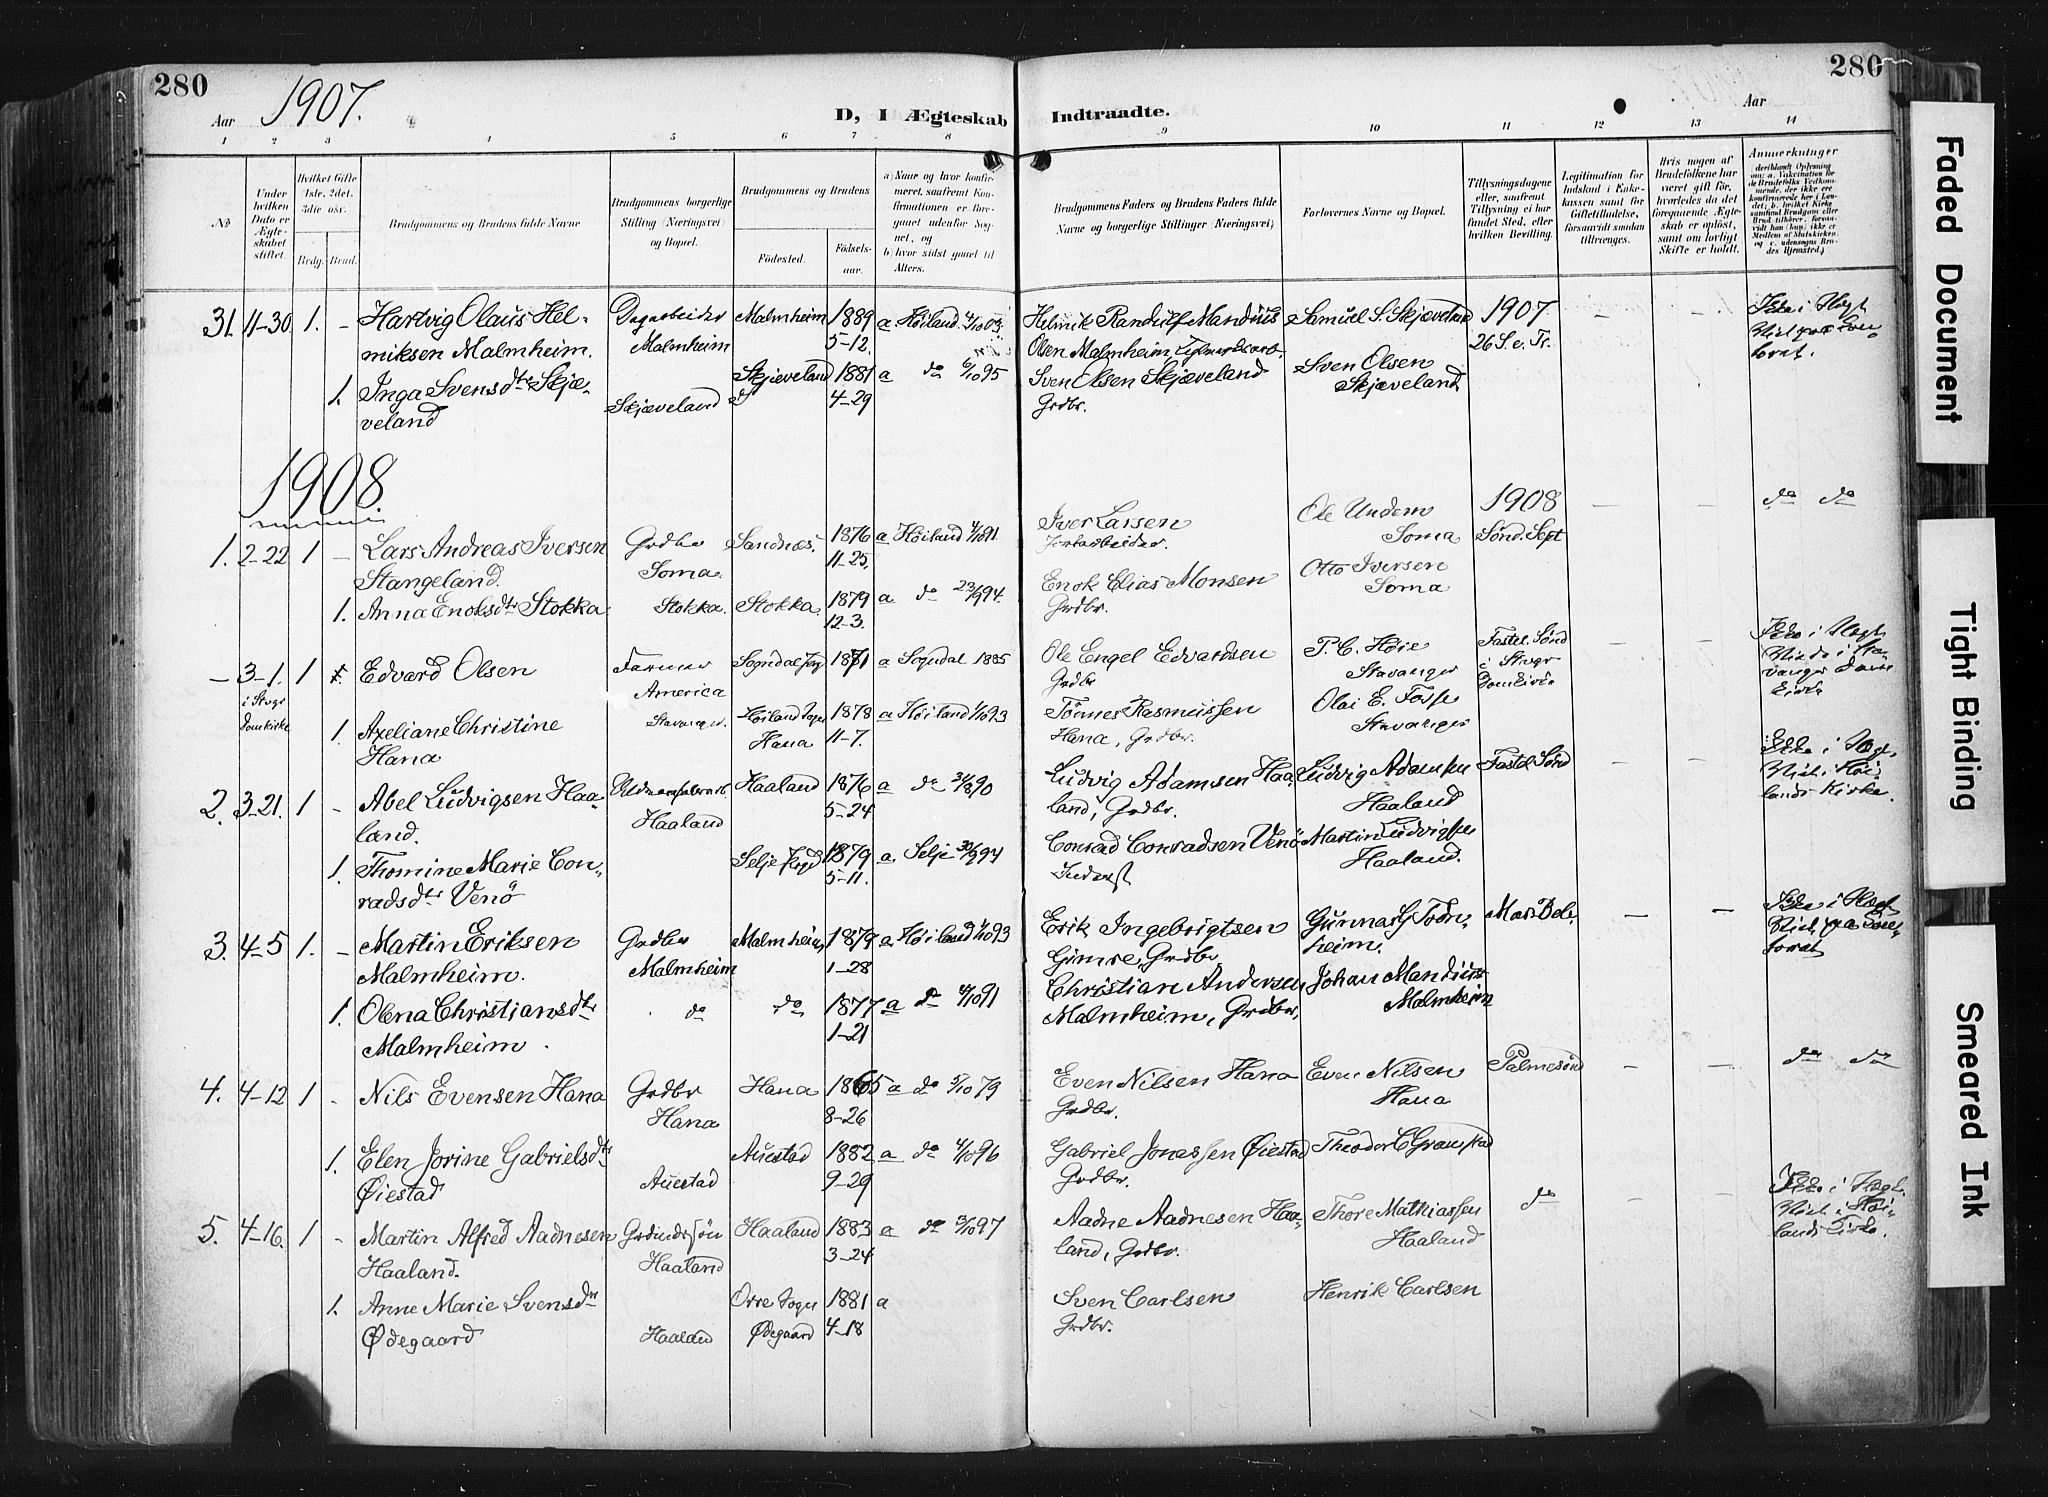 280
280
Aar 1907.
D, I Ægteskab Indtraadte.
Aar
1 2 3 4 5 6 7 8 9 10 11 12 13 14
№
Under hvilken Dato er Ægteskabet stiftet.
Hvilket Gifte 1ste, 2det, 3die osv.
Brdg. Brud.
Brudgommens og Brudens fulde Navne
Brudgommens borgerlige Stilling (Næringsvei) og Bopæl.
Brudgommens og Brudens
Fødested.
Fødselsaar.
a) Naar og hvor konfirmeret, saafremt Konfirmationen er foregaaet udenfor Sognet, og
b) hvor sidst gaaet til Alters.
Brudgommens Faders og Brudens Faders fulde Navne og borgerlige Stillinger (Næringsvei)
Forlovernes Navne og Bopæl.
Tillysningsdagene eller, saafremt Tillysning ei har fundet Sted, efter hvilken Bevilling.
Legitimation for Indskud i Enkekassen samt for Giftetilladelse, forsaavidt saadan tiltrænges.
Hvis nogen af Brudefolkene har været gift før, hvorledes da det foregaaende Ægteskab er opløst, samt om lovligt Skifte er holdt.
Anmerkninger
31. 11-30 1. - Hartvig Olaus Helmiksen Malmheim. Dagarbeider Malmheim Malmheim 1889 5-12. a Høiland 4/10 03. Helmik Randulf Mandius Olsen Malmheim Samuel S. Skjæveland 1907 26 S. e. Tr. - -
1. Inga Svensdtr Skjæveland Skjæveland Skjæveland 1881 4-29 a do 6/10 95 Sven Olsen Skjæveland Grdbr. Sven Olsen Skjæveland
1908.
1908
1. 2-22 1 - Lars Andreas Iversen Stangeland. Grdbr Soma. Sandnæs. 1876 11-25. a Høiland 4/10 91 Iver Larsen Ole Undem Soma Sønd. Sept - - do do
1. Anna Enoksdtr Stokka Stokka. Stokka. 1879 12-3. a do 23/9 94. Enok Elias Monsen Grdbr. Otto Iversen Soma
- 3-1. i Stvgr Domkirke 1 Edvard Olsen Farmer America Sogndal 1871 a Sogndal 1885 Ole Engel Edvardsen Grdbr P. C. Høie Stavanger Fastel. Sønd i Stvgr Domkirke - -
1. Axeliane Christine Hana Stavanger. Høiland Sogn Hana 1878 11-7. a Høiland 1/10 93 Tönnes Rasmussen Hana, Grdbr. Olai E. Fosse Stavanger
2. 3-21. 1 - Abel Ludvigsen Haaland. Haaland Haaland 1876 5-24 a do 31/8 90 Ludvig Adamsen Haaland, Grdbr. Ludvig Adamsen Haaland Fastel Sønd - -
1. Thomine Marie Conradsdtr Venö Selje 1879 5-11. a. Selje 30/9 94 Conrad Conradsen Venö Inderst Martin Ludvigsen Haaland.
3. 4-5 1. - Martin Eriksen Malmheim. Grdbr Malmheim Malmheim 1879 1-28 a Høiland 1/10 93 Erik Ingebrigtsen Gimre, Grdbr Gunnar G Todnheim. - -
1. Olena Christiansdtr Malmheim. do do 1877 1-21 a do 4/10 91 Christian Andersen Malmheim, Grdbr. Johan Mandius Malmheim
4. 4-12 1 - Nils Evensen Hana Grdbr Hana Hana 1865 8-26 a do 5/10 79 Even Nilsen Hana Grdbr. Even Nilsen Hana Palmesønd - - do do
1. Elen Jorine Gabrielsdtr Øiestad Auestad Auestad 1882 9-29 a do 4/10 96 Gabriel Jonassen Øiestad Grdbr. Theodor C Gramstad
5. 4-16. 1 - Martin Alfred Aadnesen Haaland. Haaland Haaland 1883 3-24 a do 3/10 97 Aadne Aadnesen Haaland, Grdbr. Thore Mathiassen Haaland do - -
1. Anne Marie Svensdtr Ødegaard Haaland Orre Sogn Ødegaard 1881 4-18 a Sven Carlsen Grdbr. Henrik Carlsen
Faded Document
Tight Binding
Smeared Ink